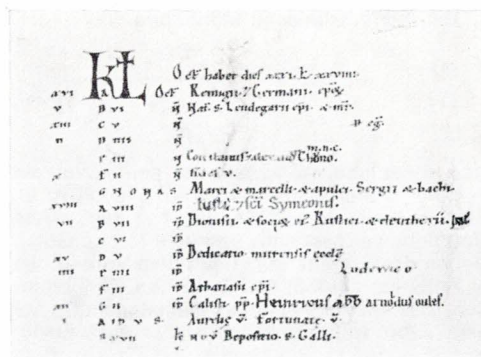 KL
Oct haber dies xxxi
xvi A Oct Remigii & Germani
v B vi N Nat s. Leudegarii epi & mr.
xiii C v N
ii D iiii N
E iii N
m.n.c.
x F ii N v.
G NONAS Marci & marcelli & apulei Sergii & bachi
xviii A viii id sci Symeonis.
vii B vii id Dionisii & Rustici & eleutherii.
C vi id
xv D v id Dedicatio murensis eccle
iiii E iiii id Ludewico
F iii id Athanasii epi.
xii G ii id Calisti pp. Heinricus abb
i A IDVS Aurelie v. Fortunate v.
xvii kl nov Depositio s. Galli.